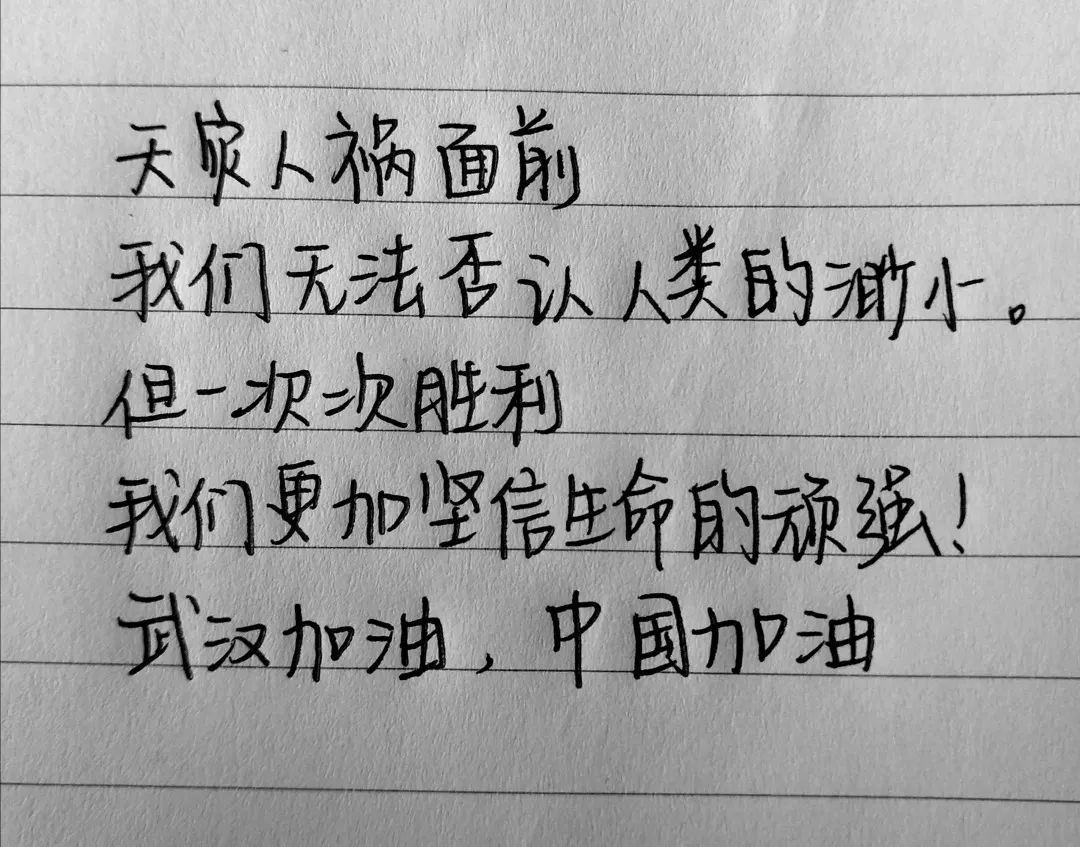 天灾人祸面前
我们无法否认人类的渺小。
但一次次胜利
我们更加坚信生命的顽强！
武汉加油，中国加油